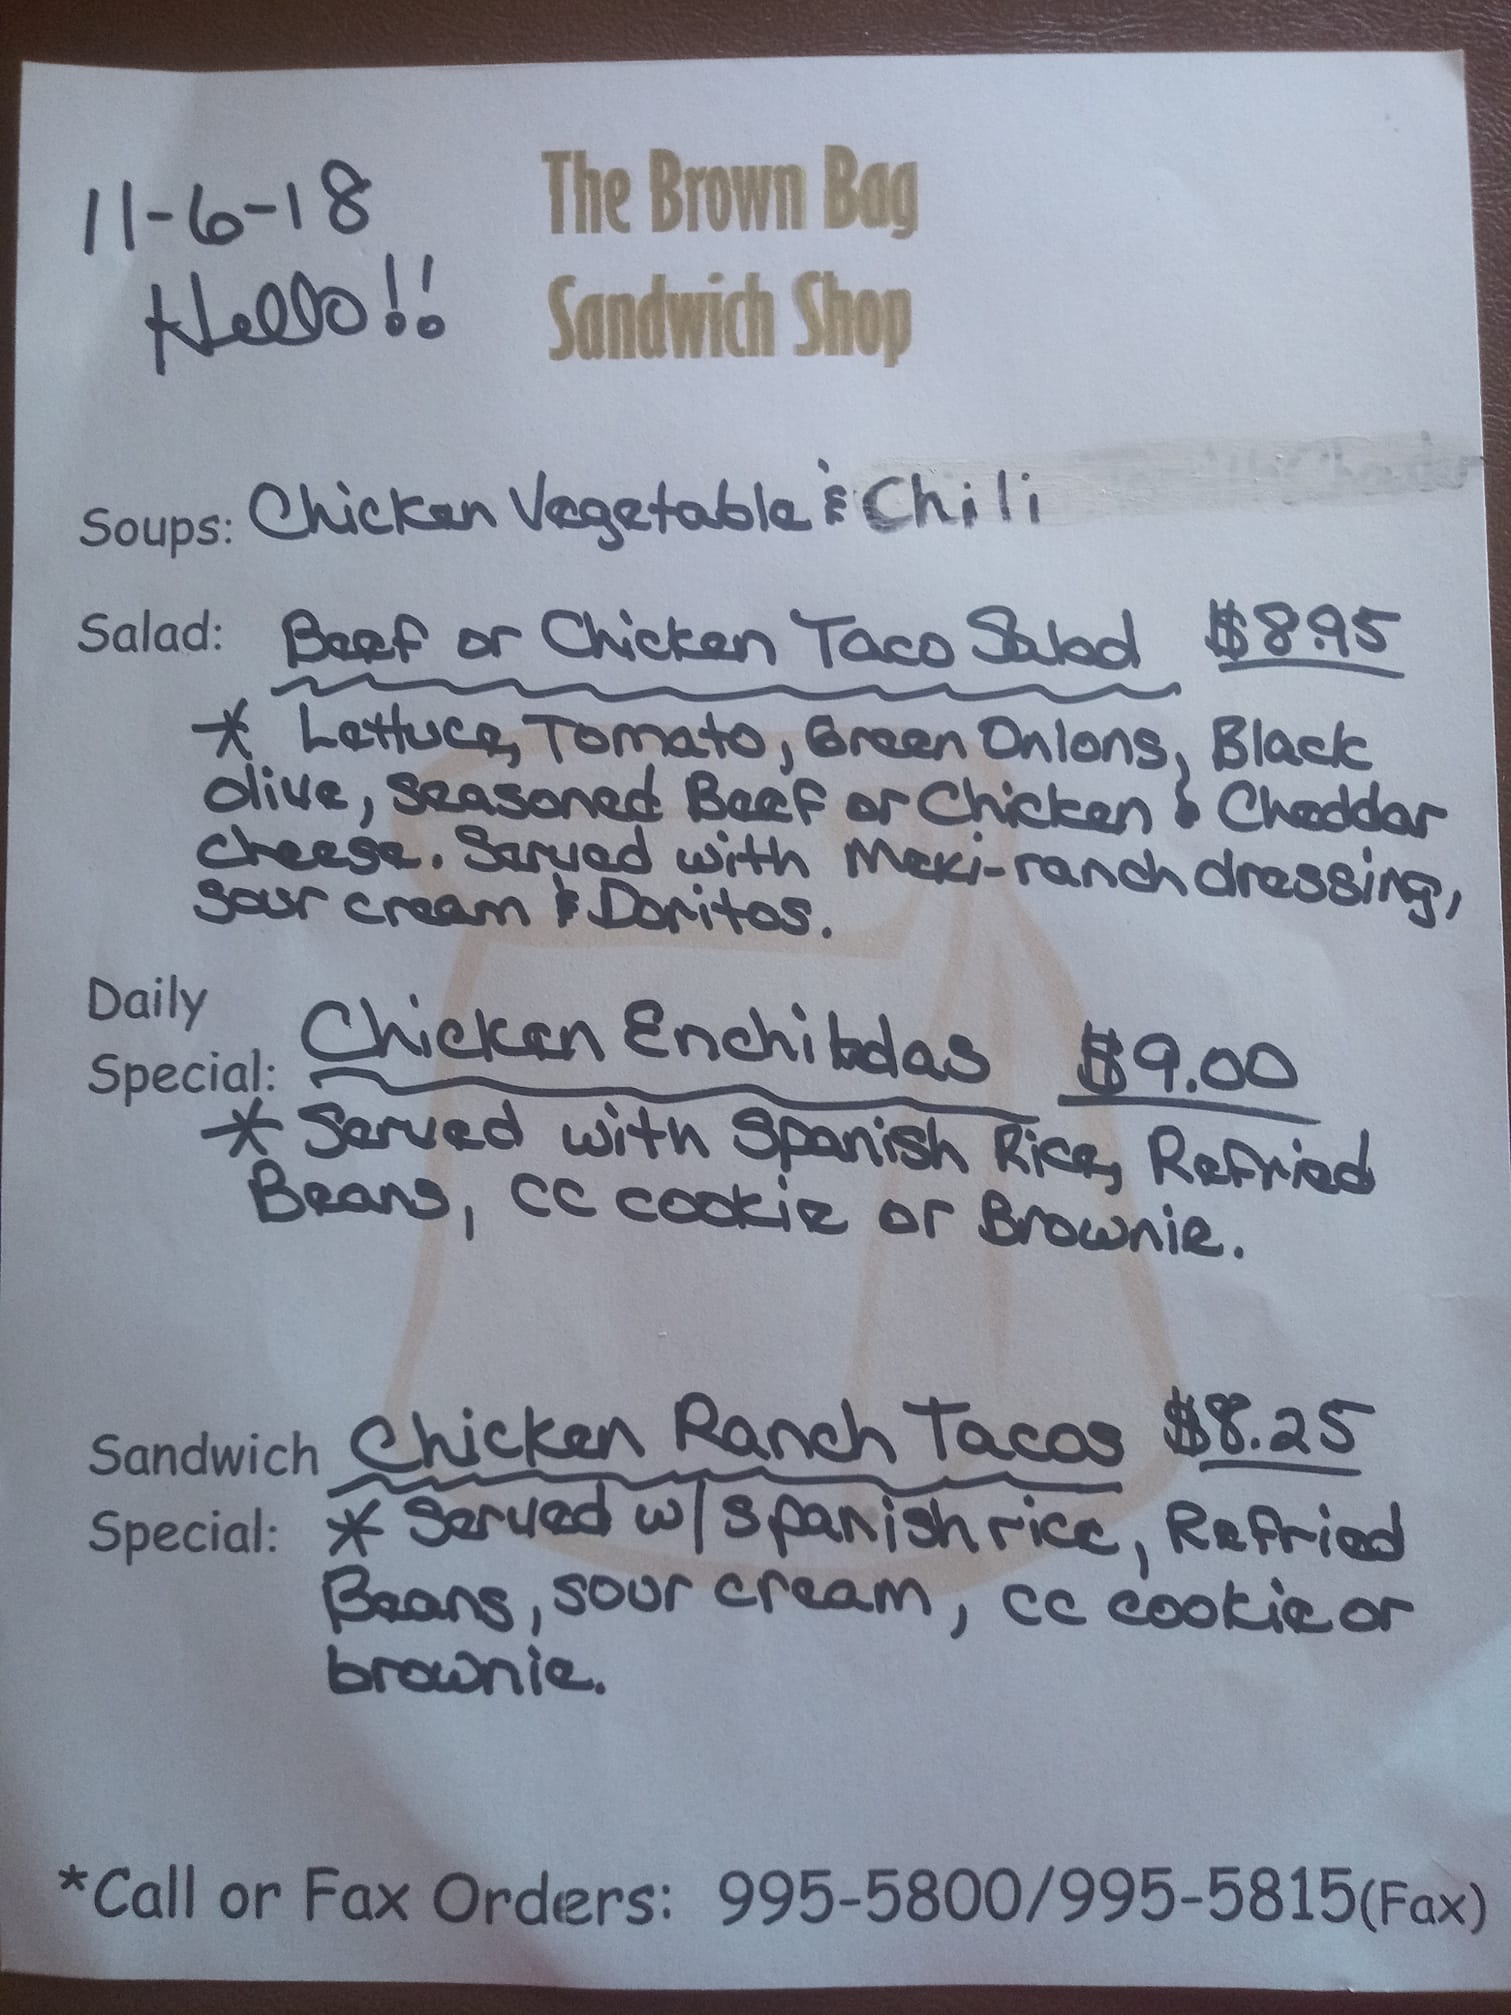 11-6-18
Hello!!
The Brown Bag
Sandwich Shop
Soups: Chicken Vegetable & Chili
Salad: Beef or Chicken Taco Salad $8.95
* Lettuce, Tomato, Green Onions, Black
olive, seasoned Beef or Chicken & Cheddar
cheese. Served with Mexi-ranch dressing,
sour cream & Doritos.
Daily
Special: Chicken Enchiladas $9.00
* Served with Spanish Rice, Refried
Beans, cc cookie or Brownie.
Sandwich Chicken Ranch Tacos $8.25
Special: * Served w/ Spanish rice, Refried
Beans, sour cream, cc cookie or
brownie.
*Call or Fax Orders: 995-5800/995-5815(Fax)